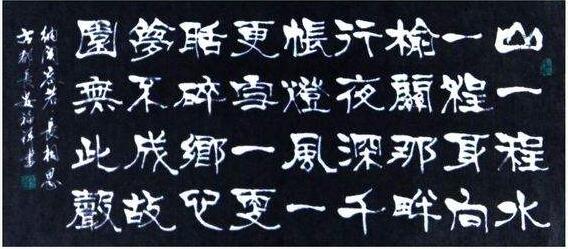 山一程水
一程身向
榆關那畔
行夜深千
帳燈風一
更雪一更
聒碎鄉心
夢不成故
園無此聲
納蘭容若長相思
書